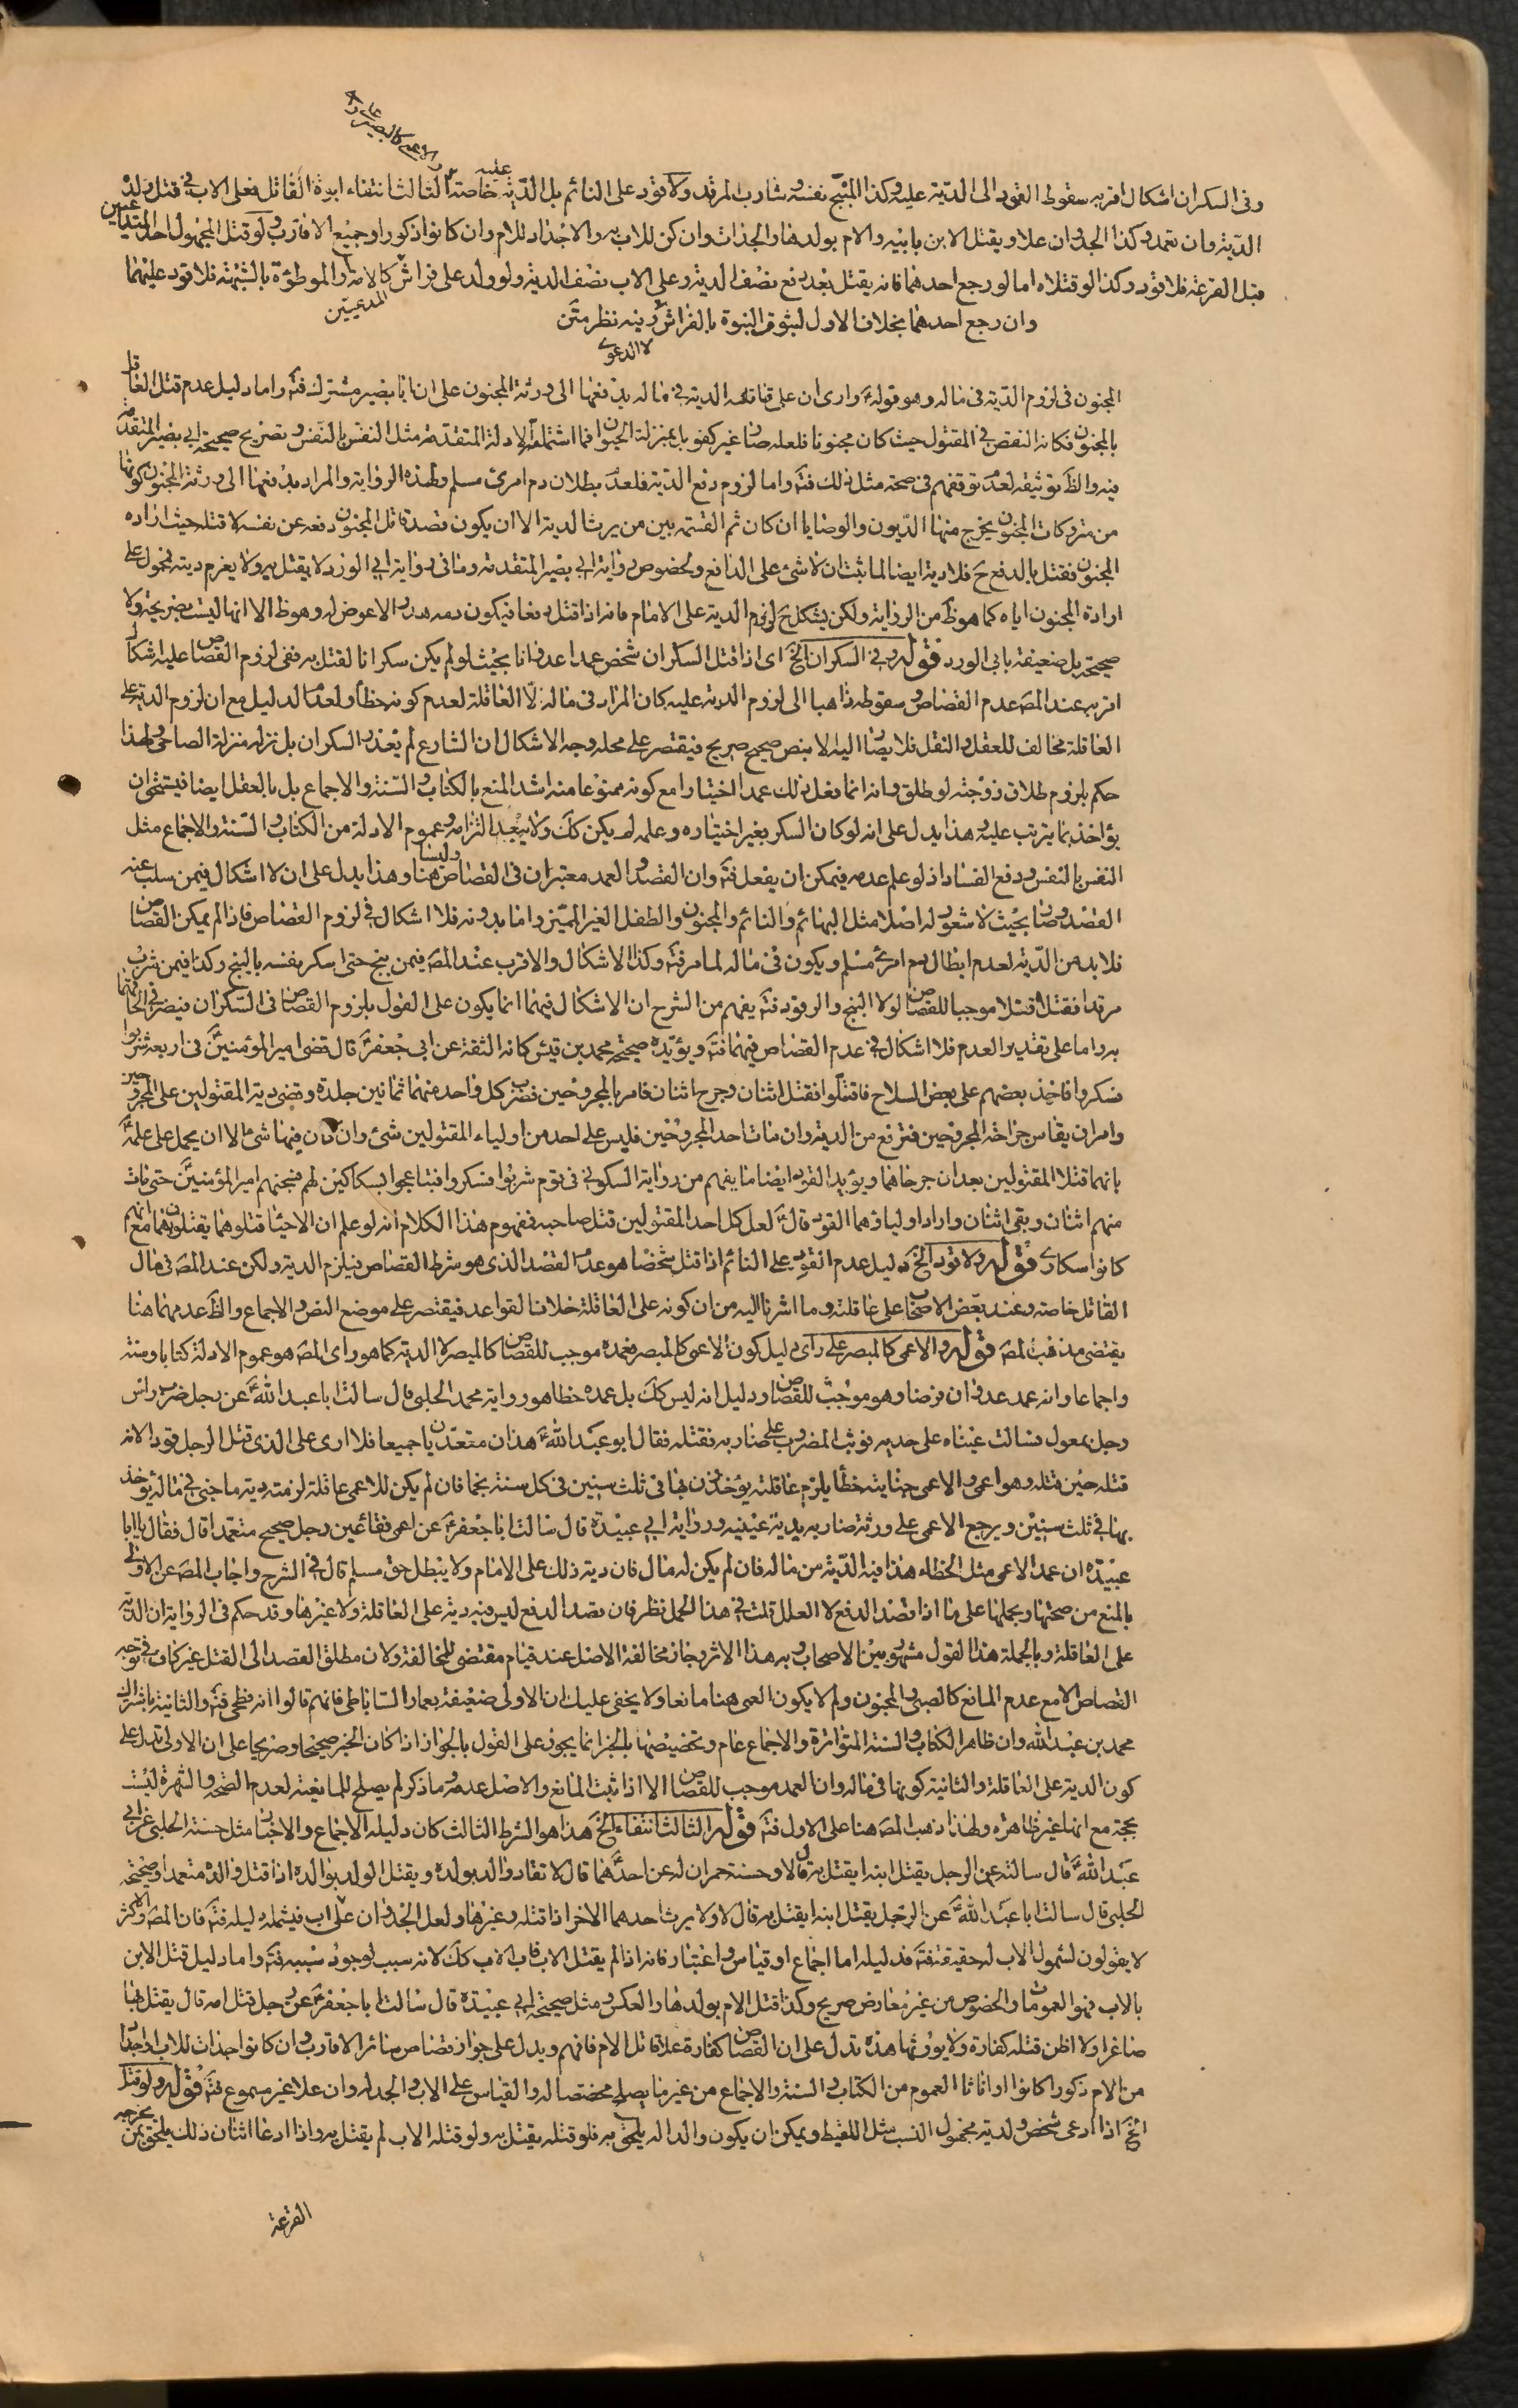 والاعمى كالمبصر على رأى
وفى السكران اشكال اقربه سقوط القود الى الدّية عليه وكذا المبنّج نفسه وشارب المرقد ولا قود على النائم بل الدّية عليه خاصة الثالث انتفاء ابوة القاتل فعلى الاب فى قتل ولده
الدية وان تعمد وكذا الجد وان علا ويقتل الابن بابيه والام بولدها والجدات وان كن للاب به والاجداد للام وان كانوا ذكورا وجميع الاقارب ولو قتل المجهول احد المتداعيين
قبل القرعة فلا قود وكذا لو قتلاه اما لو رجع احدهما فانه يقتل بعد دفع نصف الدية وعلى الاب نصف الدية ولو ولد على فراش المدعيين كالامة والموطؤة بالشبهة فلا قود عليهما
وان رجع احدهما بخلاف الاول لثبوت البنوة بالفراش لا الدعوى وفيه نظر متن
المجنون فى لزوم الدّية فى ماله وهو قوله وارى ان على قاتله الدية فى ماله يدفعها الى ورثة المجنون على ان ابا بصير مشترك فت واما دليل عدم قتل العاقل
بالمجنون فكانه النقص فى المقتول حيث كان مجنونا فلعله صار غير كفو بل بمنزلة الحيوان فما اشتمله الادلة المتقدمة مثل النفس بالنفس وتصريح صحيحة ابى بصير المتقدمة
فيه والظ توثيقه لعدم توقفهم فى صحة مثل ذلك فت واما لزوم دفع الدية فلعدم بطلان دم امرئ مسلم ولهذه الرواية والمراد بدفعها الى ورثة المجنون كونها
من متروكات المجنون يخرج منها الديون والوصايا ان كان ثم القسمة بين من يرث الدية الا ان يكون قصد قاتل المجنون دفعه عن نفسه لا قتله حيث اراده
المجنون فقتل بالدفع ح فلا دية ايضا لما ثبت ان لا شئ على الدافع ولخصوص رواية ابى بصير المتقدمة وما فى رواية ابى الورد لا يقتل به ولا يغرم ديته محمول على
ارادة المجنون اياه كما هو ظ من الرواية ولكن يشكل ح لزوم الدية على الامام فانه اذا قتل دفعا فيكون دمه هدرا لا عوض له وهو ظ الا انها ليست بصريحة ولا
صحيحة بل ضعيفة بابى الورد قوله وفى السكران الخ اى اذا قتل السكران شخص عمدا عدوانا بحيث لو لم يكن سكرانا لقتل به ففى لزوم القصاص عليه اشكال
اقربه عند المص عدم القصاص وسقوطه ذاهبا الى لزوم الدية عليه كان المراد فى ماله لا العاقلة لعدم كونه خطأ ولعدم الدليل مع ان لزوم الدية على
العاقلة مخالف للعقل والنقل فلا يصار اليه الا بنص صحيح صريح فيقتصر على محله وجه الاشكال ان الشارع لم يعذر السكران بل نزله منزلة الصاحى ولهذا
حكم بلزوم طلاق زوجته لو طلق وانه انما فعل ذلك عمدا اختيارا مع كونه ممنوعا منه اشد المنع بالكتاب والسنة والاجماع بل بالعقل ايضا فيستحق ان
يؤاخذ بما يترتب عليه وهذا يدل على انه لو كان السكر بغير اختياره وعلمه لم يكن كك ولا يبعد التزامه وعموم الادلة من الكتاب والسنة والاجماع مثل
النفس بالنفس ودفع الفساد اذ لو علم عدمه فيمكن ان يفعل فت وان القصد والعمد معتبران فى القصاص وليسا هنا وهذا يدل على ان لا اشكال فيمن سلب عنه
القصد وصار بحيث لا شعور له اصلا مثل البهائم والنائم والمجنون والطفل الغير المميز واما بدونه فلا اشكال فى لزوم القصاص فاذا لم يمكن القصاص
فلا بد من الدّية لعدم ابطال دم امرئ مسلم ويكون فى ماله لما مر فت وكذا الاشكال والاقرب عند المص فيمن بنج حتى اسكر نفسه بالبنج وكذا فيمن شرب
مرقدا فقتل قتلا موجبا للقصاص لولا البنج والرقود فت يفهم من الشرح ان الاشكال فيهما انما يكون على القول بلزوم القصاص فى السكران فيضر فى الحاقهما
به واما على تقدير العدم فلا اشكال فى عدم القصاص فيهما فت ويؤيده صحيحة محمد بن قيس كانه الثقة عن ابى جعفر قال قضى امير المؤمنين فى اربعة شربوا
فسكروا فاخذ بعضهم على بعض السلاح فاقتتلوا فقتل اثنان وجرح اثنان فامر بالمجروحين فضرب كل واحد منهما ثمانين جلدة وقضى دية المقتولين على المجروحين
وامر ان يقاس جراحة المجروحين فترفع من الدية وان مات احد المجروحين فليس على احد من اولياء المقتولين شئ وان كان فيها شئ الا ان يحمل على علمه
بانهما قتلا المقتولين بعد ان جرحاهما ويؤيد القود ايضا ما يفهم من رواية السكونى فى قوم شربوا فسكروا فتباعجوا بسكاكين لهم فسجنهم امير المؤمنين حتى مات
منهم اثنان وبقى اثنان واراد اولياؤهما القود قال لعل كل احد المقتولين قتل صاحبه فمفهوم هذا الكلام انه لو علم ان الاحياء قتلوهما يقتلون بهما مع انهم
كانوا سكارى قوله ولا قود الخ دليل عدم القود على النائم اذا قتل شخصا هو عدم القصد الذى هو شرط القصاص فيلزم الدية ولكن عند المص فى مال
القاتل خاصة وعند بعض الاصحاب على عاقلته وما اشرنا اليه من ان كونه على العاقلة خلاف القواعد فيقتصر على موضع النص والاجماع والظ عدمهما هنا
يقتضى مذهب المص قوله والاعمى كالمبصر على رأى دليل كون الاعمى كالمبصر فعمده موجب للقصاص كالمبصر لا الدية كما هو رأى المص هو عموم الادلة كتابا وسنة
واجماعا وانه عمد عدوان فرضا وهو موجب للقصاص ودليل انه ليس كك بل عمده خطا هو رواية محمد الحلبى قال سالت ابا عبد الله عن رجل ضرب راس
رجل بمعول فسالت عيناه على خديه فوثب المضروب على ضاربه فقتله فقال ابو عبد الله هذان متعديان جميعا فلا ارى على الذى قتل الرجل قودا لانه
قتله حين قتله وهو اعمى والاعمى جنايته خطأ يلزم عاقلته يؤخذون بها فى ثلث سنين فى كل سنة نجما فان لم يكن للاعمى عاقلة لزمته دية ما جنى فى ماله يؤخذ
بها فى ثلث سنين ويرجع الاعمى على ورثة ضاربه بدية عينيه ورواية ابى عبيدة قال سالت ابا جعفر عن اعمى فقأ عين رجل صحيح متعمدا قال فقال يا ابا
عبيدة ان عمد الاعمى مثل الخطاء هذا فيه الدّية من ماله فان لم يكن له مال فان دية ذلك على الامام ولا يبطل حق مسلم قال فى الشرح واجاب المص عن الاولى
بالمنع من صحتها وبحملها على ما اذا قصد الدفع لا العلل قلت فى هذا الحمل نظر فان قصد الدفع ليس فيه دية على العاقلة ولا غيرها وقد حكم فى الرواية ان الدية
على العاقلة وبالجملة هذا القول مشهور بين الاصحاب وبه هذا الاثر وجاز مخالفة الاصل عند قيام مقتضى للمخالفة ولان مطلق القصد الى القتل غير كاف فى توجه
القصاص الا مع عدم المانع كالصبى والمجنون ولم لا يكون العمى هنا مانعا ولا يخفى عليك ان الاولى ضعيفة بعمار الساباطى فانهم قالوا انه فطحى فت والثانية باشتراك
محمد بن عبد الله وان ظاهر الكتاب والسنة المتواترة والاجماع عام وتخصيصها بالخبر انما يجوز على القول بالجواز اذا كان الخبر صحيحا وصريحا على ان الاولى تدل على
كون الدية على العاقلة والثانية كونها فى ماله وان العمد موجب للقصاص الا اذا ثبت المانع والاصل عدمه وما ذكر لم يصلح للمانعية لعدم الصحة والشهرة ليست
بحجة مع انها غير ظاهرة ولهذا ذهب المص هنا على الاول فت قوله الثالث انتفاء الخ هذا هو الشرط الثالث كان دليله الاجماع والاخبار مثل حسنة الحلبى عن ابى
عبد الله قال سالته عن الرجل يقتل ابنه ايقتل به قال لا وحسنة حمران له عن احدهما قال لا تقاد والد بولده ويقتل الولد بوالده اذا قتل والده متعمدا وصحيحة
الحلبى قال سالت ابا عبد الله عن الرجل يقتل ابنه ايقتل به قال لا ولا يرث احدهما الاخر اذا قتله وغيرها ولعل الجد وان على اب فيشمله دليله فت فان المص والاكثر
لا يقولون لشمول الاب له حقيقة فت فدليله اما اجماع او قياس واعتبار فانه اذا لم يقتل الاب فاب الاب كك لانه سبب لوجود سببه فت واما دليل قتل الابن
بالاب فهو العمومات والخصوص من غير معارض صريح وكذا قتل الام بولدها والعكس ومثل صحيحة ابى عبيدة قال سالت ابا جعفر عن رجل قتل امه قال يقتل بها
صاغرا ولا اظن قتله كفارة ولا يورثها هذه تدل على ان القصاص كفارة علا قاتل الام فافهم ويدل على جواز قصاص سائر الاقارب وان كانوا جدات للاب واجدادا
من الام ذكورا كانوا او اناثا العموم من الكتاب والسنة والاجماع من غير ما يصلح مخصصا له والقياس على الاب والجد له وان علا غير مسموع فت قوله ولو قتل
الخ اذا ادعى شخص ولدية مجهول النسب مثل اللقيط ويمكن ان يكون والدا له يلحق به فلو قتله يقتل به ولو قتله الاب لم يقتل به واذا ادعا اثنان ذلك يلحق بمن يخرجه
القرعة